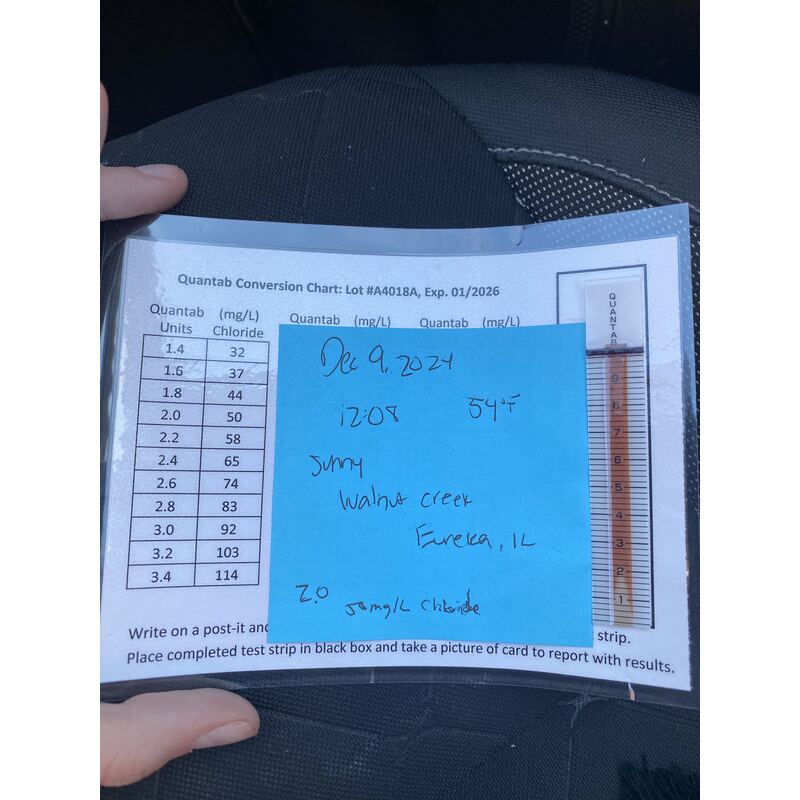 Quantab Conversion Chart: Lot #A4018A, Exp. 01/2026
Quantab (mg/L) Quantab (mg/L) Quantab (mg/L)
Units Chloride
1.4 32
1.6 37
1.8 44
2.0 50
2.2 58
2.4 65
2.6 74
2.8 83
3.0 92
3.2 103
3.4 114
Dec 9, 2024
12:08 54°F
Sunny
Walnut Creek
Eureka, IL
2.0 50mg/L Chloride
Write on a post-it and
strip.
Place completed test strip in black box and take a picture of card to report with results.
QUANTAB
9
8
7
6
5
4
3
2
1